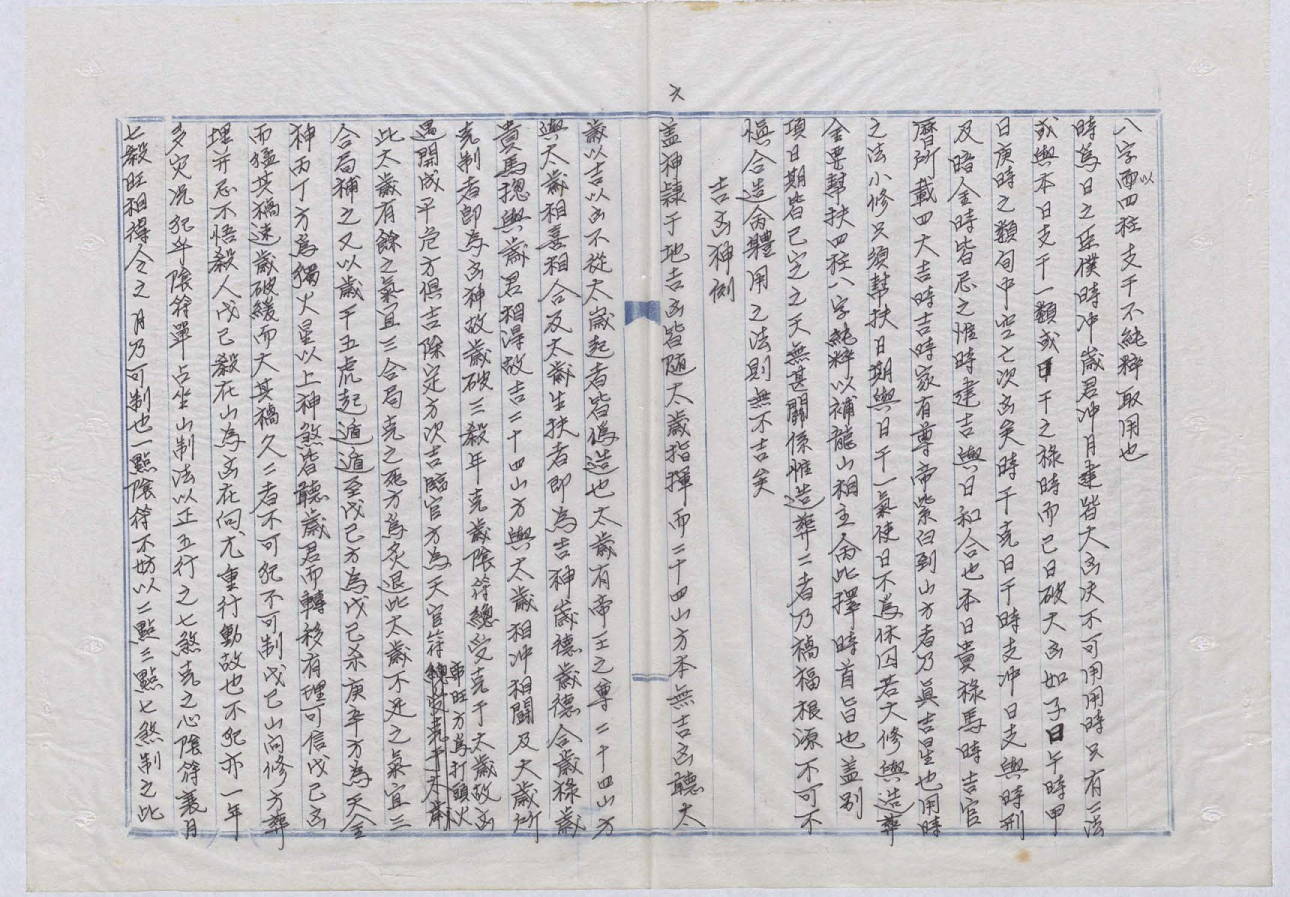 八字西四柱支干不純粹取用也
以
時為日之臣僕時冲歲君冲月建皆大凶决不可用用時只有三法
或與本日支干一類或日干之祿時而已日破大凶如子日午時甲
日庚時之類旬中空亡次凶矣時干克日干時支冲日支與時刑
及暗金時皆忌之惟時建吉與日和合也本日貴祿馬時吉官
曆所載四大吉時吉時家有尊帝紫白到山方者乃真吉星也用時
之法小修只須幫扶日期與日干一氣使日不為休囚若大修與造葬
全要幫扶四柱八字純粹以補龍山相主命此擇時首旨也盖別
項日期皆已定之天無甚關係惟造葬二者乃禍福根源不可不
慎合造命體用之法則無不吉矣
吉凶神例
六
盖神隸于地吉凶皆隨太歲指揮而二十四山方本無吉凶聽太
歲以吉以凶不從太歲起者皆偽造也太歲有帝王之尊二十四山方
與太歲相喜相合及太歲生扶者即為吉神歲德歲德合歲祿歲
貴馬總與歲君相得故吉二十四山方與太歲相冲相鬪及太歲所
克制者即為凶神故歲破三殺年克歲陰符總受克于太歲故凶
遇開成平危方俱吉除定方次吉臨官方為天官符
帝旺方為打頭火
總收克于太歲
此太歲有餘之氣宜三合局克之死方為炙退此太歲不足之氣宜三
合局補之又以歲干五虎起遁遁至戊己方為戊己杀庚辛方為天金
神丙丁方為獨火星以上神煞皆聽歲君而轉移有理可信戊己凶
而猛其禍速歲破緩而大其禍久二者不可犯不可制戊己山向修方葬
埋开忌不悟殺人戊己殺在山為凶在向尤重行動故也不犯亦一年
多灾况犯乎陰符單占坐山制法以正五行之七煞克之心陰符衰月
七殺旺相得令之月乃可制也一點陰符不妨以二點三點七煞制之此